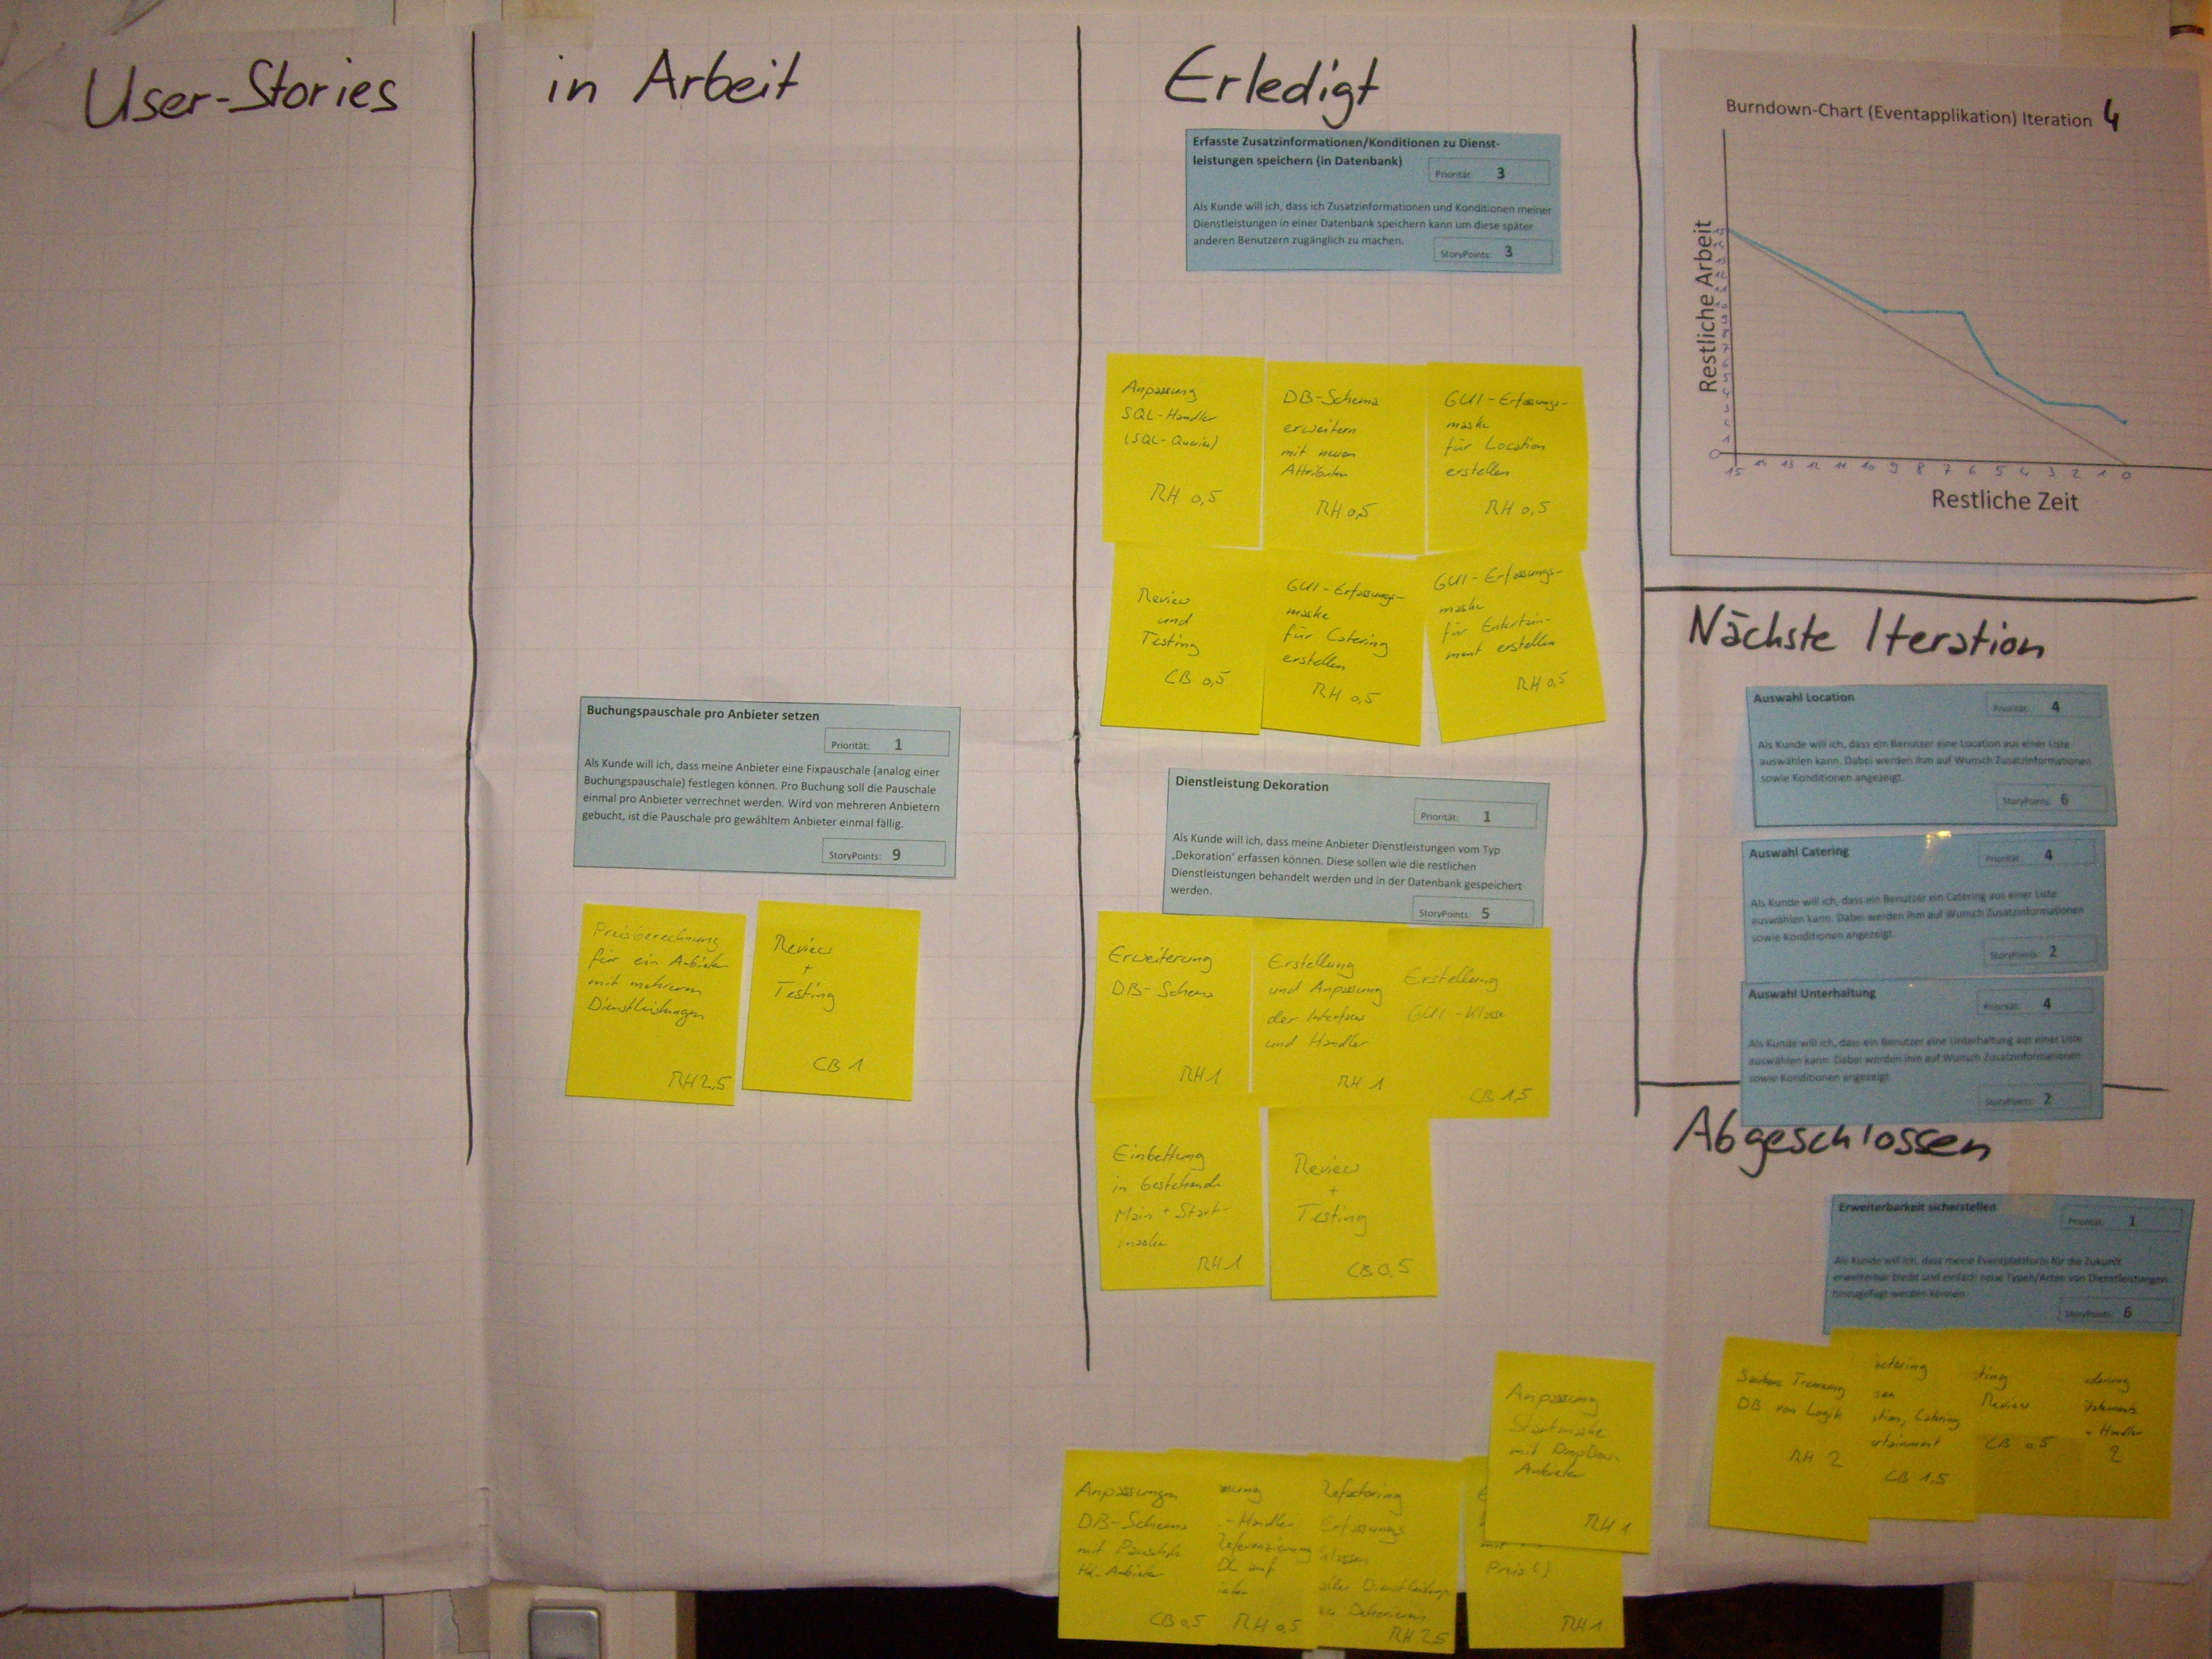 User-Stories
in Arbeit
Buchungspauschale pro Anbieter setzen
Priorität: 1
Als Kunde will ich, dass meine Anbieter eine Fixpauschale (analog einer
Buchungspauschale) festlegen können. Pro Buchung soll die Pauschale
einmal pro Anbieter verrechnet werden. Wird von mehreren Anbietern
gebucht, ist die Pauschale pro gewähltem Anbieter einmal fällig.
StoryPoints: 9
Preisberechnung
für ein Anbieter
mit mehreren
Dienstleistungen
RH 2,5
Review
+
Testing
CB 1
Erledigt
Erfasste Zusatzinformationen/Konditionen zu Dienst-
leistungen speichern (in Datenbank)
Priorität: 3
Als Kunde will ich, dass ich Zusatzinformationen und Konditionen meiner
Dienstleistungen in einer Datenbank speichern kann um diese später
anderen Benutzern zugänglich zu machen.
StoryPoints: 3
Anpassung
SQL-Handler
(SQL-Queries)
RH 0,5
DB-Schema
erweitern
mit neuen
Attributen
RH 0,5
GUI-Erfassungs-
maske
für Location
erstellen
RH 0,5
Review
und
Testing
CB 0,5
GUI-Erfassungs-
maske
für Catering
erstellen
RH 0,5
GUI-Erfassungs-
maske
für Entertain-
ment erstellen
RH 0,5
Dienstleistung Dekoration
Priorität: 1
Als Kunde will ich, dass meine Anbieter Dienstleistungen vom Typ
‚Dekoration' erfassen können. Diese sollen wie die restlichen
Dienstleistungen behandelt werden und in der Datenbank gespeichert
werden.
StoryPoints: 5
Erweiterung
DB-Schema
RH 1
Erstellung
und Anpassung
der Interfaces
und Handler
RH 1
Erstellung
GUI-Klasse
CB 1,5
Einbettung
in bestehende
Main + Start-
maske
RH 1
Review
+
Testing
CB 0,5
Anpassungen
DB-Schema
mit
CB 0,5
ssung
-Handler
Referenzierung
DL auf
ieter
RH 0,5
Refactoring
Erfassungs
klassen
aller
RH 2,5
Preis()
RH 1
Anpassung
Startmaske
mit DropDown
Anbieter
RH 1
Burndown-Chart (Eventapplikation) Iteration 4
Restliche Arbeit
0
15 14 13 12 11 10 9 8 7 6 5 4 3 2 1 0
Restliche Zeit
Nächste Iteration
Auswahl Location
Priorität: 4
Als Kunde will ich, dass ein Benutzer eine Location aus einer Liste
auswählen kann. Dabei werden ihm auf Wunsch Zusatzinformationen
sowie Konditionen angezeigt.
StoryPoints: 6
Auswahl Catering
Priorität: 4
Als Kunde will ich, dass ein Benutzer ein Catering aus einer Liste
auswählen kann. Dabei werden ihm auf Wunsch Zusatzinformationen
sowie Konditionen angezeigt.
StoryPoints: 2
Auswahl Unterhaltung
Priorität: 4
Als Kunde will ich, dass ein Benutzer eine Unterhaltung aus einer Liste
auswählen kann. Dabei werden ihm auf Wunsch Zusatzinformationen
sowie Konditionen angezeigt.
StoryPoints: 2
Abgeschlossen
Erweiterbarkeit sicherstellen
Priorität: 1
Als Kunde will ich, dass meine Eventplattform für die Zukunft
erweiterbar bleibt und einfach neue Typen/Arten von Dienstleistungen
hinzugefügt werden können.
StoryPoints: 6
Saubere Trennung
DB von Logik
RH 2
actoring
sen
ation, Catering
ertainment
CB 1,5
ting
Review
CB 0,5
derung
Statements
+ Handler
2